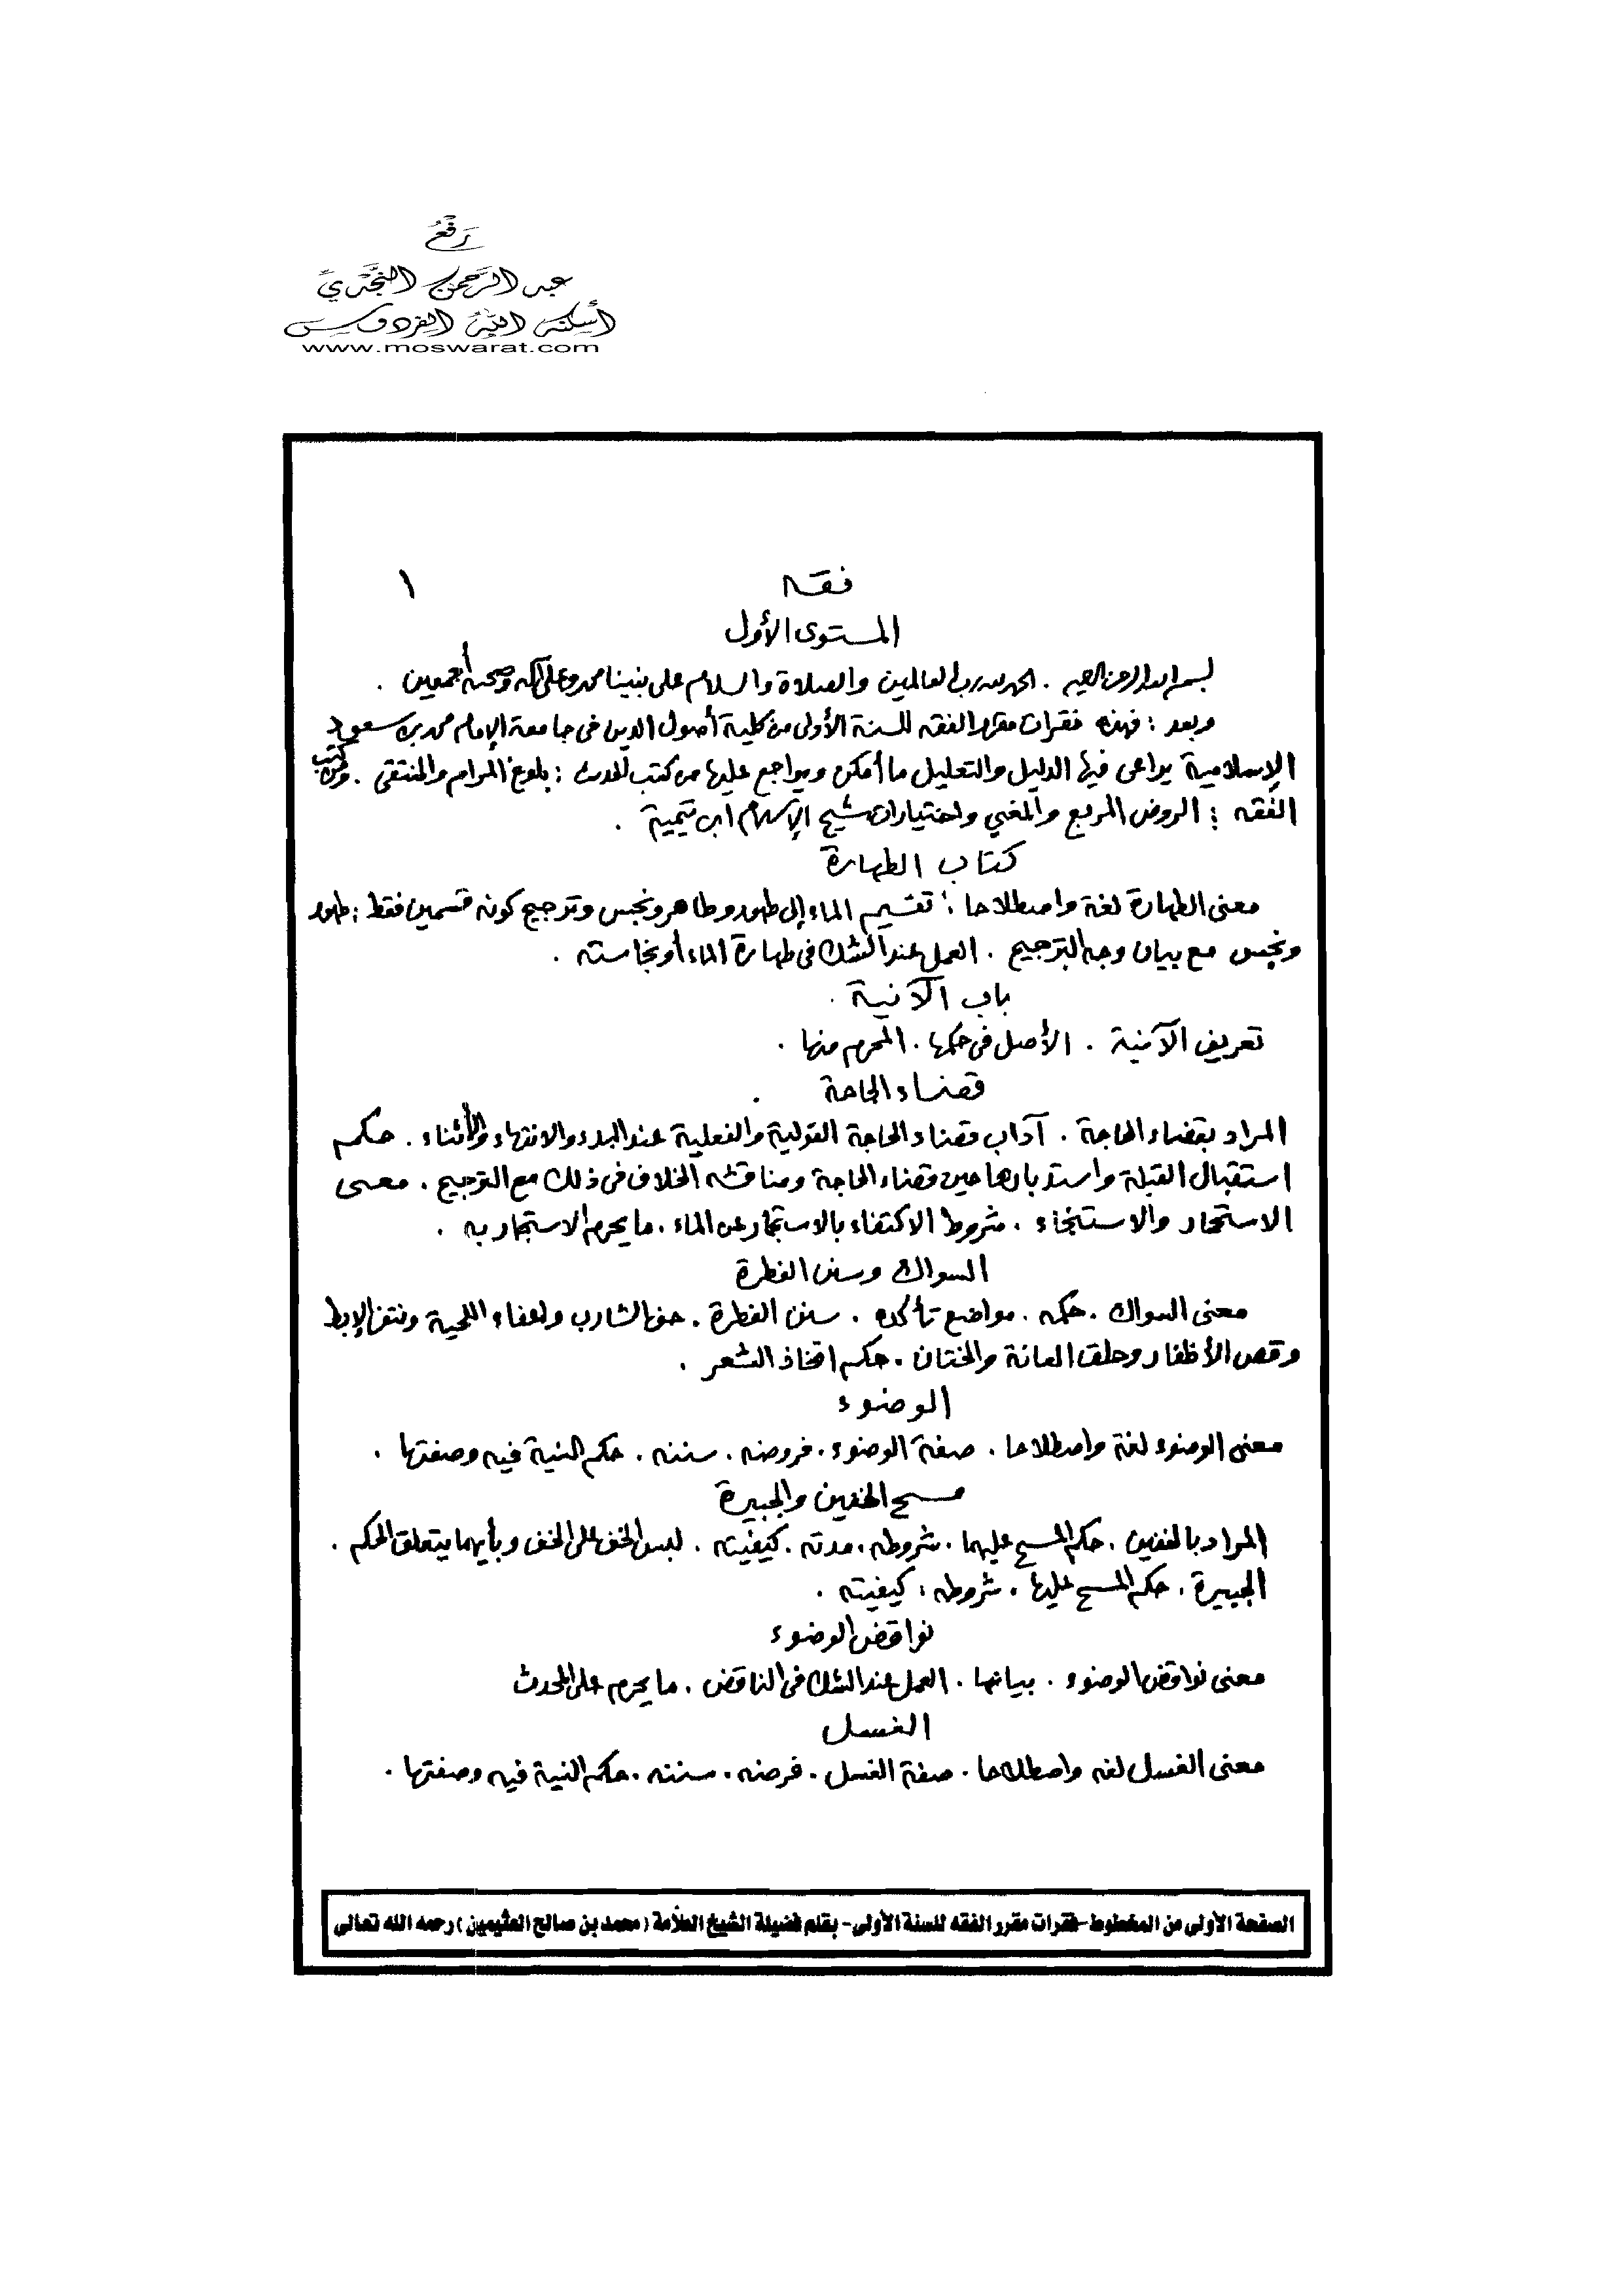 رَفْعُ
عبد الرَّحمن النَّجْدِيِّ
أسكنه اللهُ الفردوس
www.moswarat.com
١
فقه
المستوى الأول
بسم الله الرحمن الرحيم . الحمد لله رب العالمين والصلاة والسلام على نبينا محمد وعلى آله وصحبه أجمعين .
وبعد : فهذه فقرات مقرر الفقه للسنة الأولى من كلية أصول الدين في جامعة الإمام محمد بن سعود
الإسلامية يراعى فيها الدليل والتعليل ما أمكن ويراجع عليها من كتب الحديث : بلوغ المرام والمنتقى . ومن كتب
الفقه : الروض المربع والمغني واختيارات شيخ الإسلام ابن تيمية .
كتاب الطهارة
معنى الطهارة لغة واصطلاحا : تقسيم الماء إلى طهور وطاهر ونجس وترجيح كونه قسمين فقط : طهور
ونجس مع بيان وجه الترجيح . العمل عند الشك في طهارة الماء أو نجاسته .
باب الآنية .
تعريف الآنية . الأصل في حكمها . المحرم منها .
قضاء الحاجة .
المراد بقضاء الحاجة . آداب قضاء الحاجة القولية والفعلية عند البدء والانتهاء والأثناء . حكم
استقبال القبلة واستدبارها حين قضاء الحاجة ومناقشة الخلاف في ذلك مع الترجيح . معنى
الاستجمار والاستنجاء . شروط الاكتفاء بالاستجمار عن الماء . ما يحرم الاستجمار به .
السواك وسنن الفطرة
معنى السواك . حكمه . مواضع تأكده . سنن الفطرة . حف الشارب وإعفاء اللحية ونتف الإبط
وقص الأظفار وحلق العانة والختان . حكم اتخاذ الشعر .
الوضوء
معنى الوضوء لغة واصطلاحا . صفة الوضوء . فروضه . سننه . حكم النية فيه وصفتها .
مسح الخفين والجبيرة
المراد بالخفين . حكم المسح عليهما . شروطه . مدته . كيفيته . لبس الخف على الخف وبأيهما يتعلق الحكم .
الجبيرة . حكم المسح عليها . شروطه : كيفيته .
نواقض الوضوء
معنى نواقض الوضوء . بيانها . العمل عند الشك في الناقض . ما يحرم على المحدث
الغسل
معنى الغسل لغه واصطلاحا . صفة الغسل . فرضه . سننه . حكم النية فيه وصفتها .
الصفحة الأولى من المخطوط - فقرات مقرر الفقه للسنة الأولى - بقلم فضيلة الشيخ العلّامة (محمد بن صالح العثيمين) رحمه الله تعالى